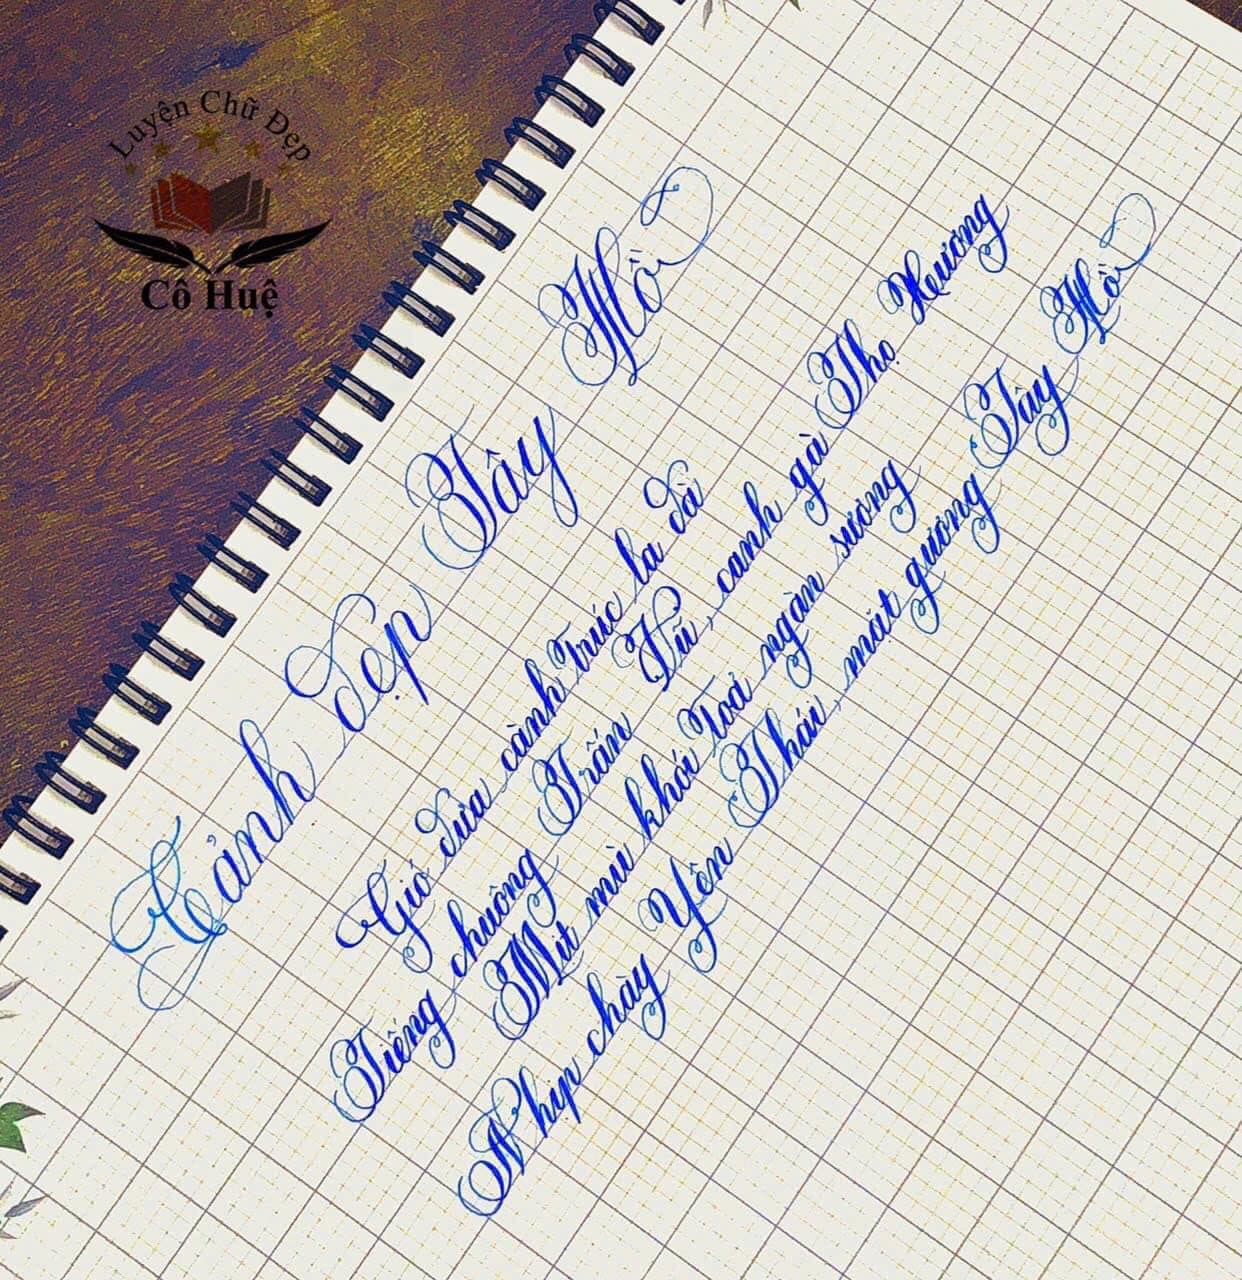 Luyện Chữ Đẹp
Cô Huệ
Cảnh đẹp Tây Hồ
Gió đưa cành trúc la đà
Tiếng chuông Trấn Vũ, canh gà Thọ Xương
Mịt mù khói toả ngàn sương
Nhịp chày Yên Thái, mặt gương Tây Hồ